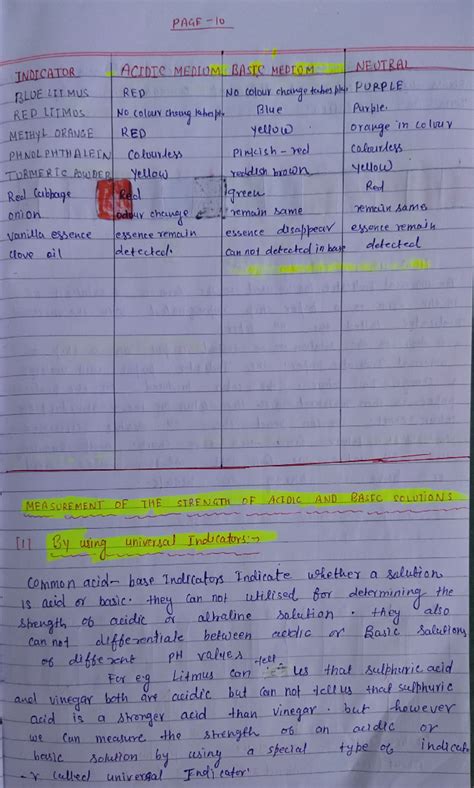 PAGE - 10
INDICATOR ACIDIC MEDIUM BASIC MEDIOM NEUTRAL
BLUE LITMUS RED No colour change takes place PURPLE
RED LITMOS No colour chang takes place Blue Purple
METHYL ORANGE RED Yellow orange in colour
PHNOLPHTHALEIN Colourless Pinkish-red Colourless
TURMERIC POWDER Yellow reddish brown Yellow
Red Cabbage Red green Red
onion odour change remain same remain same
vanilla essence essence remain essence disappear essence remain
clove oil detected. can not detected in base detected
MEASUREMENT OF THE STRENGTH OF ACIDIC AND BASIC SOLUTIONS
[1] By using universal Indicators:→
Common acid- base Indicators Indicate whether a solution
is acid or basic. they can not utilised for determining the
strength of acidic or alkaline solution. they also
can not differentiate between acidic or Basic Solutions
of different PH values
For e.g Litmus can tell us that sulphuric acid
and vinegar both are acidic but can not tell us that sulphuric
acid is a stronger acid than vinegar. but however
we can measure the strength of an acidic or
basic solution by using a special type of indicato
-r called universal Indicator